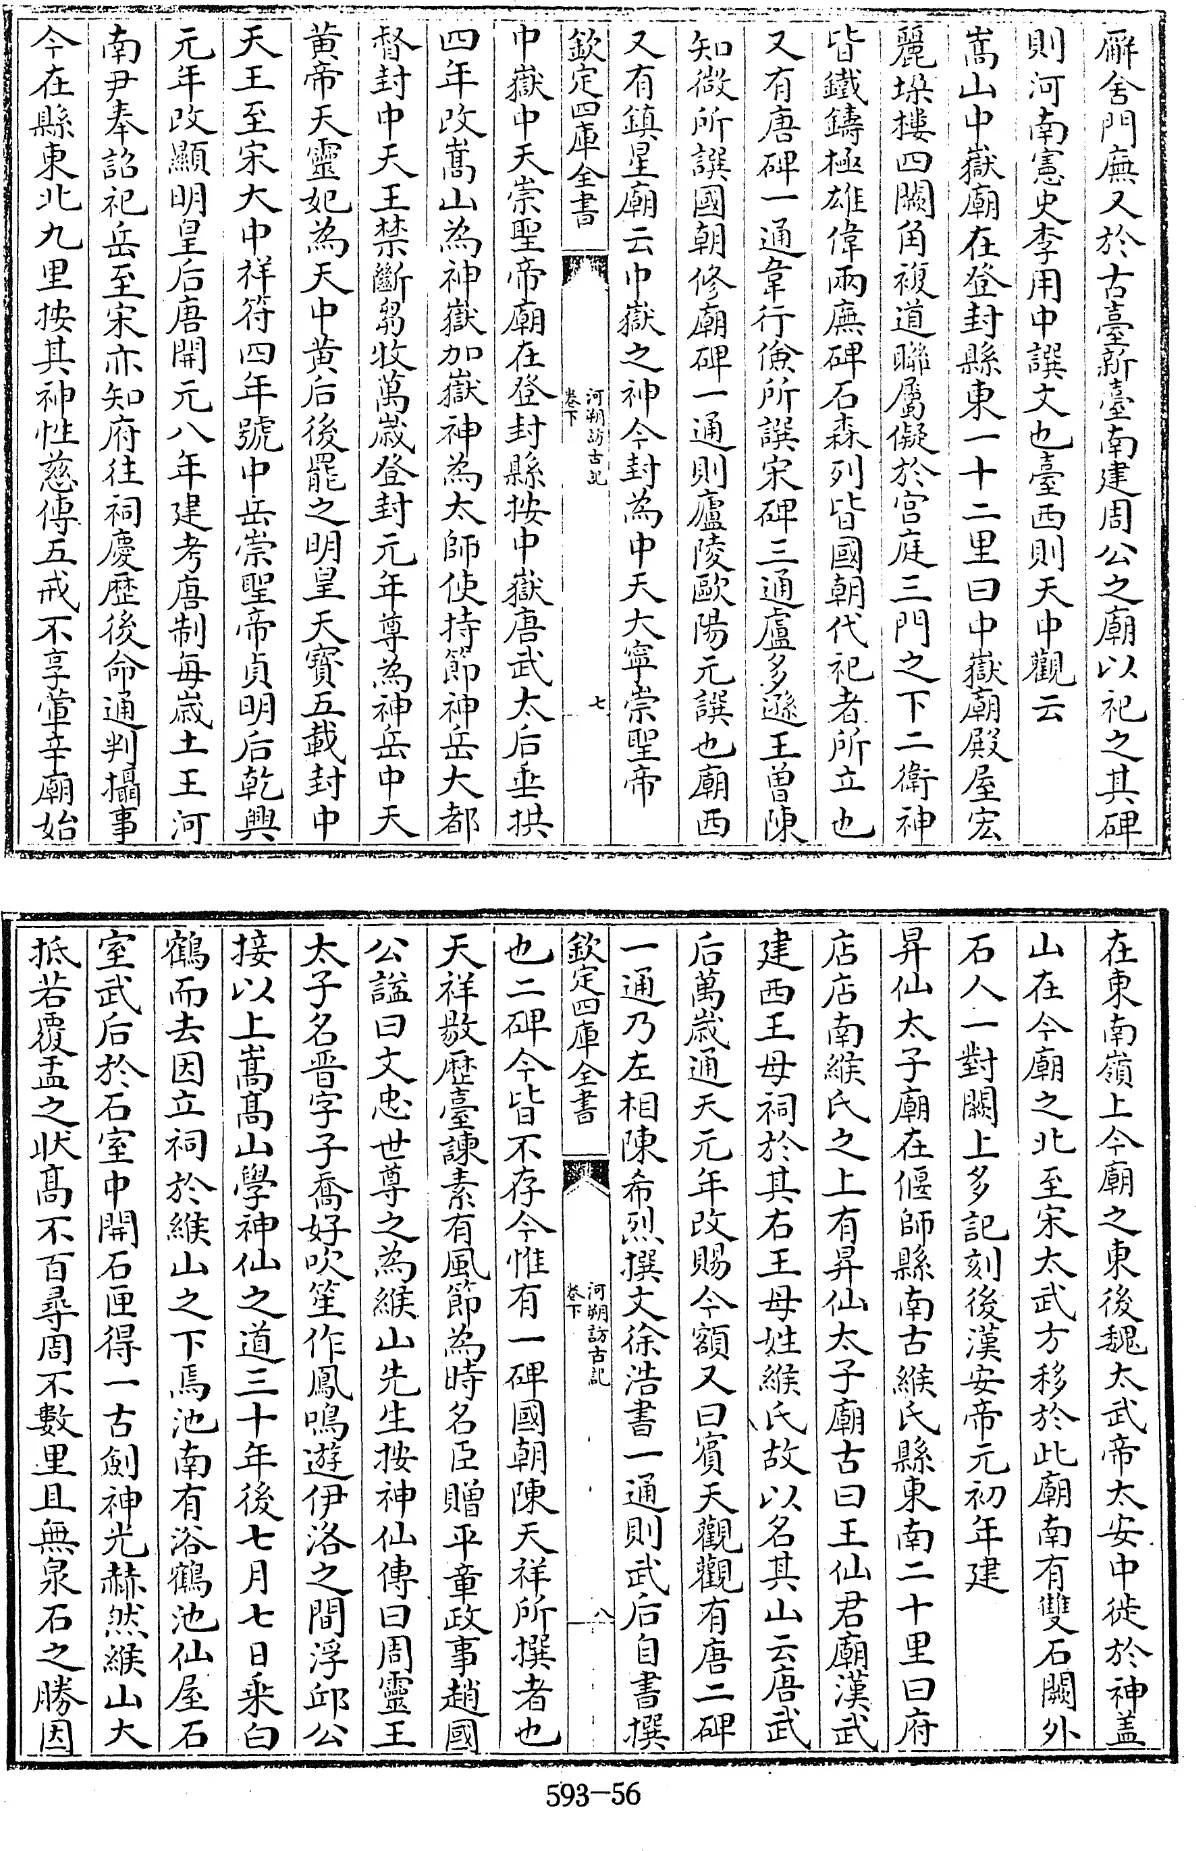 廨舍門廡又於古臺新臺南建周公之廟以祀之其碑
則河南憲史李用中譔文也臺西則天中觀云
嵩山中嶽廟在登封縣東一十二里曰中嶽廟殿屋宏
麗垜樓四闕角複道聯屬儗於宫庭三門之下二衛神
皆鐵鑄極雄偉兩廡碑石森列皆國朝代祀者所立也
又有唐碑一通韋行儉所譔宋碑三通盧多遜王曾陳
知微所譔國朝修廟碑一通則廬陵歐陽元譔也廟西
又有鎮星廟云中嶽之神今封為中天大寧崇聖帝
欽定四庫全書
河朔訪古記
卷下
七
中嶽中天崇聖帝廟在登封縣按中嶽唐武太后垂拱
四年改嵩山為神嶽加嶽神為太師使持節神岳大都
督封中天王禁斷芻牧萬嵗登封元年尊為神岳中天
黄帝天靈妃為天中黄后後罷之明皇天寳五載封中
天王至宋大中祥符四年號中岳崇聖帝貞明后乾興
元年改顯明皇后唐開元八年建考唐制每嵗土王河
南尹奉詔祀岳至宋亦知府往祠慶歴後命通判攝事
今在縣東北九里按其神性慈傳五戒不享葷辛廟始
在東南嶺上今廟之東後魏太武帝太安中徙於神盖
山在今廟之北至宋太武方移於此廟南有雙石闕外
石人一對闕上多記刻後漢安帝元初年建
昇仙太子廟在偃師縣南古緱氏縣東南二十里曰府
店店南緱氏之上有昇仙太子廟古曰王仙君廟漢武
建西王母祠於其右王母姓緱氏故以名其山云唐武
后萬嵗通天元年改賜今額又曰賔天觀觀有唐二碑
一通乃左相陳希烈撰文徐浩書一通則武后自書撰
欽定四庫全書
河朔訪古記
卷下
八
也二碑今皆不存今惟有一碑國朝陳天祥所撰者也
天祥敭歴臺諫素有風節為時名臣贈平章政事趙國
公謚曰文忠世尊之為緱山先生按神仙傳曰周靈王
太子名晋字子喬好吹笙作鳳鳴遊伊洛之間浮邱公
接以上嵩髙山學神仙之道三十年後七月七日乘白
鶴而去因立祠於緱山之下焉池南有浴鶴池仙屋石
室武后於石室中開石匣得一古劍神光赫然緱山大
抵若覆盂之狀髙不百尋周不數里且無泉石之勝因
593-56